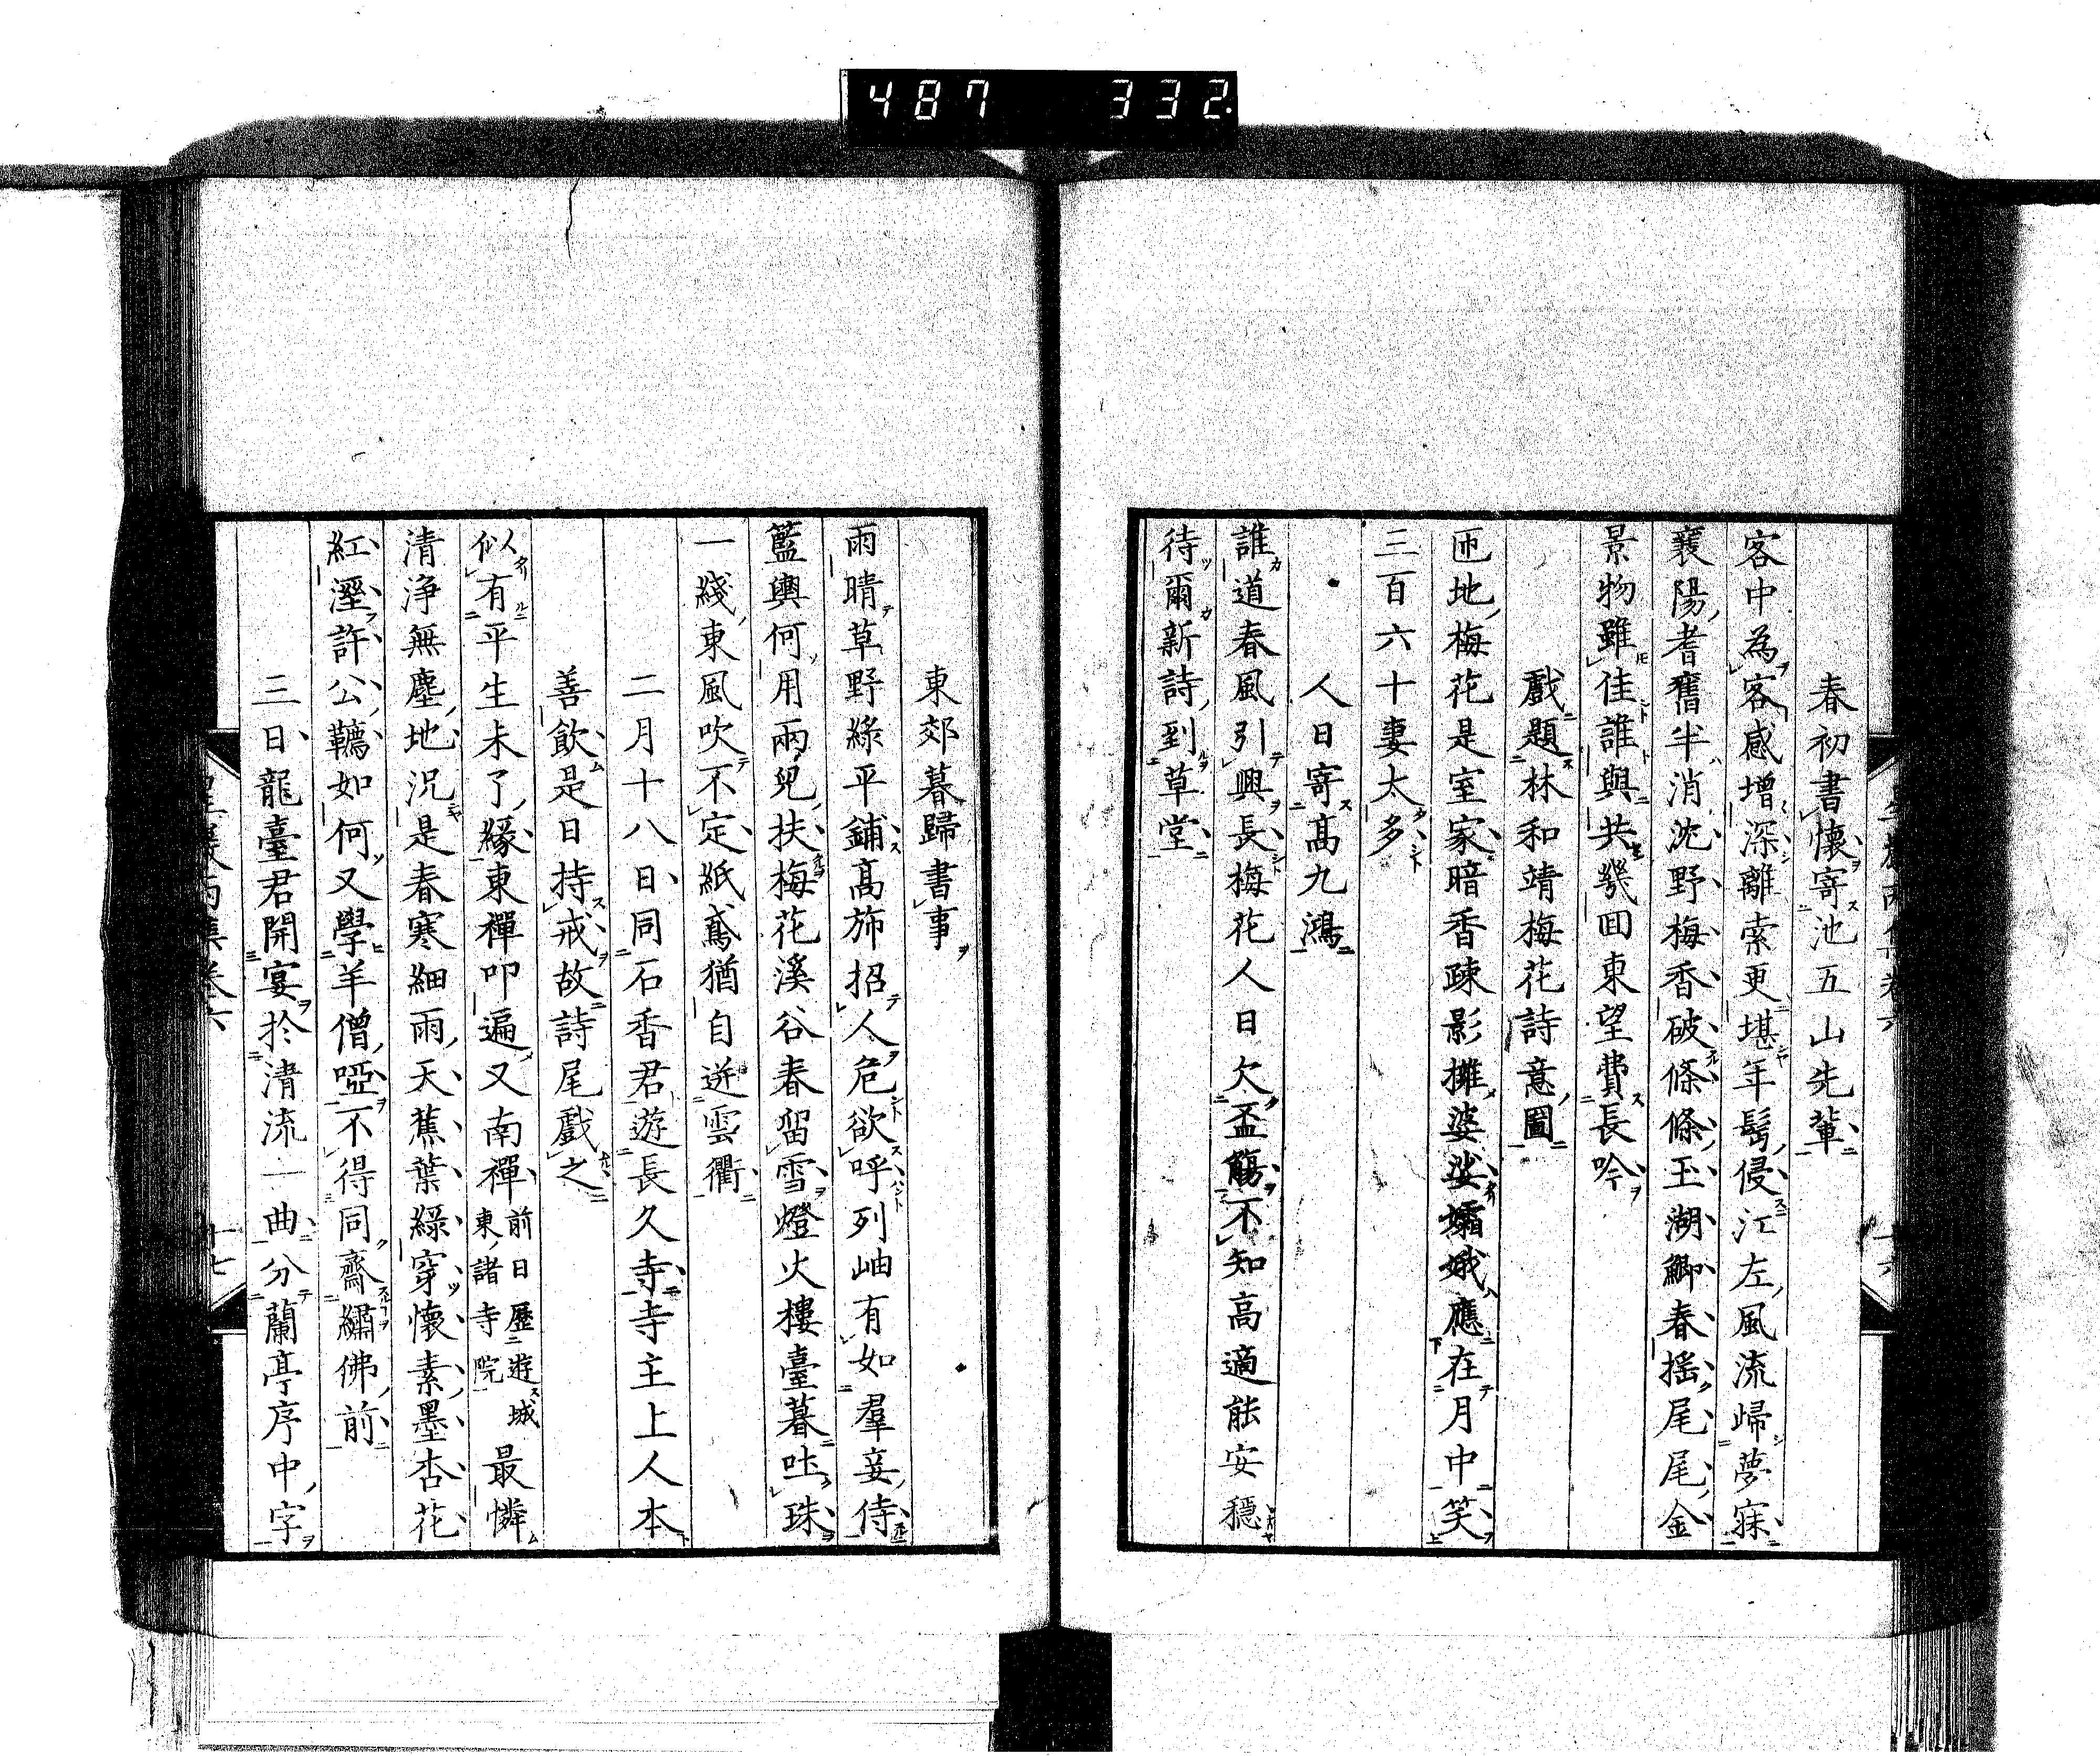 487 332
春初書懷寄池五山先輩
客中為客感增深離索更堪年髩侵江左風流歸夢寐
襄陽耆舊半消沈野梅香破條條玉湖鄉春搖尾尾金
景物雖佳誰與共幾回東望費長吟
戲題林和靖梅花詩意圖
匝地梅花是室家暗香疎影擁婆娑孀娥應在月中笑
三百六十妻太多
人日寄高九鴻
誰道春風引興長梅花人日欠盃觴不知高適能安穩
待爾新詩到草堂
東郊暮歸書事
雨晴草野綠平鋪高斾招人危欲呼列岫有如羣妾侍
籃輿何用兩兒扶梅花溪谷春留雪燈火樓臺暮吐珠
一綫東風吹不定紙鳶猶自迸雲衢
二月十八日同石香君遊長久寺寺主上人本
善飲是日持戒故詩尾戲之
似有平生未了緣東禪叩遍又南禪前日歷遊城東諸寺院最憐
清淨無塵地況是春寒細雨天蕉葉綠穿懷素墨杏花
紅溼許公韉如何又學羊僧啞不得同齋繡佛前
三日龍臺君開宴於清流一曲分蘭亭序中字
十七